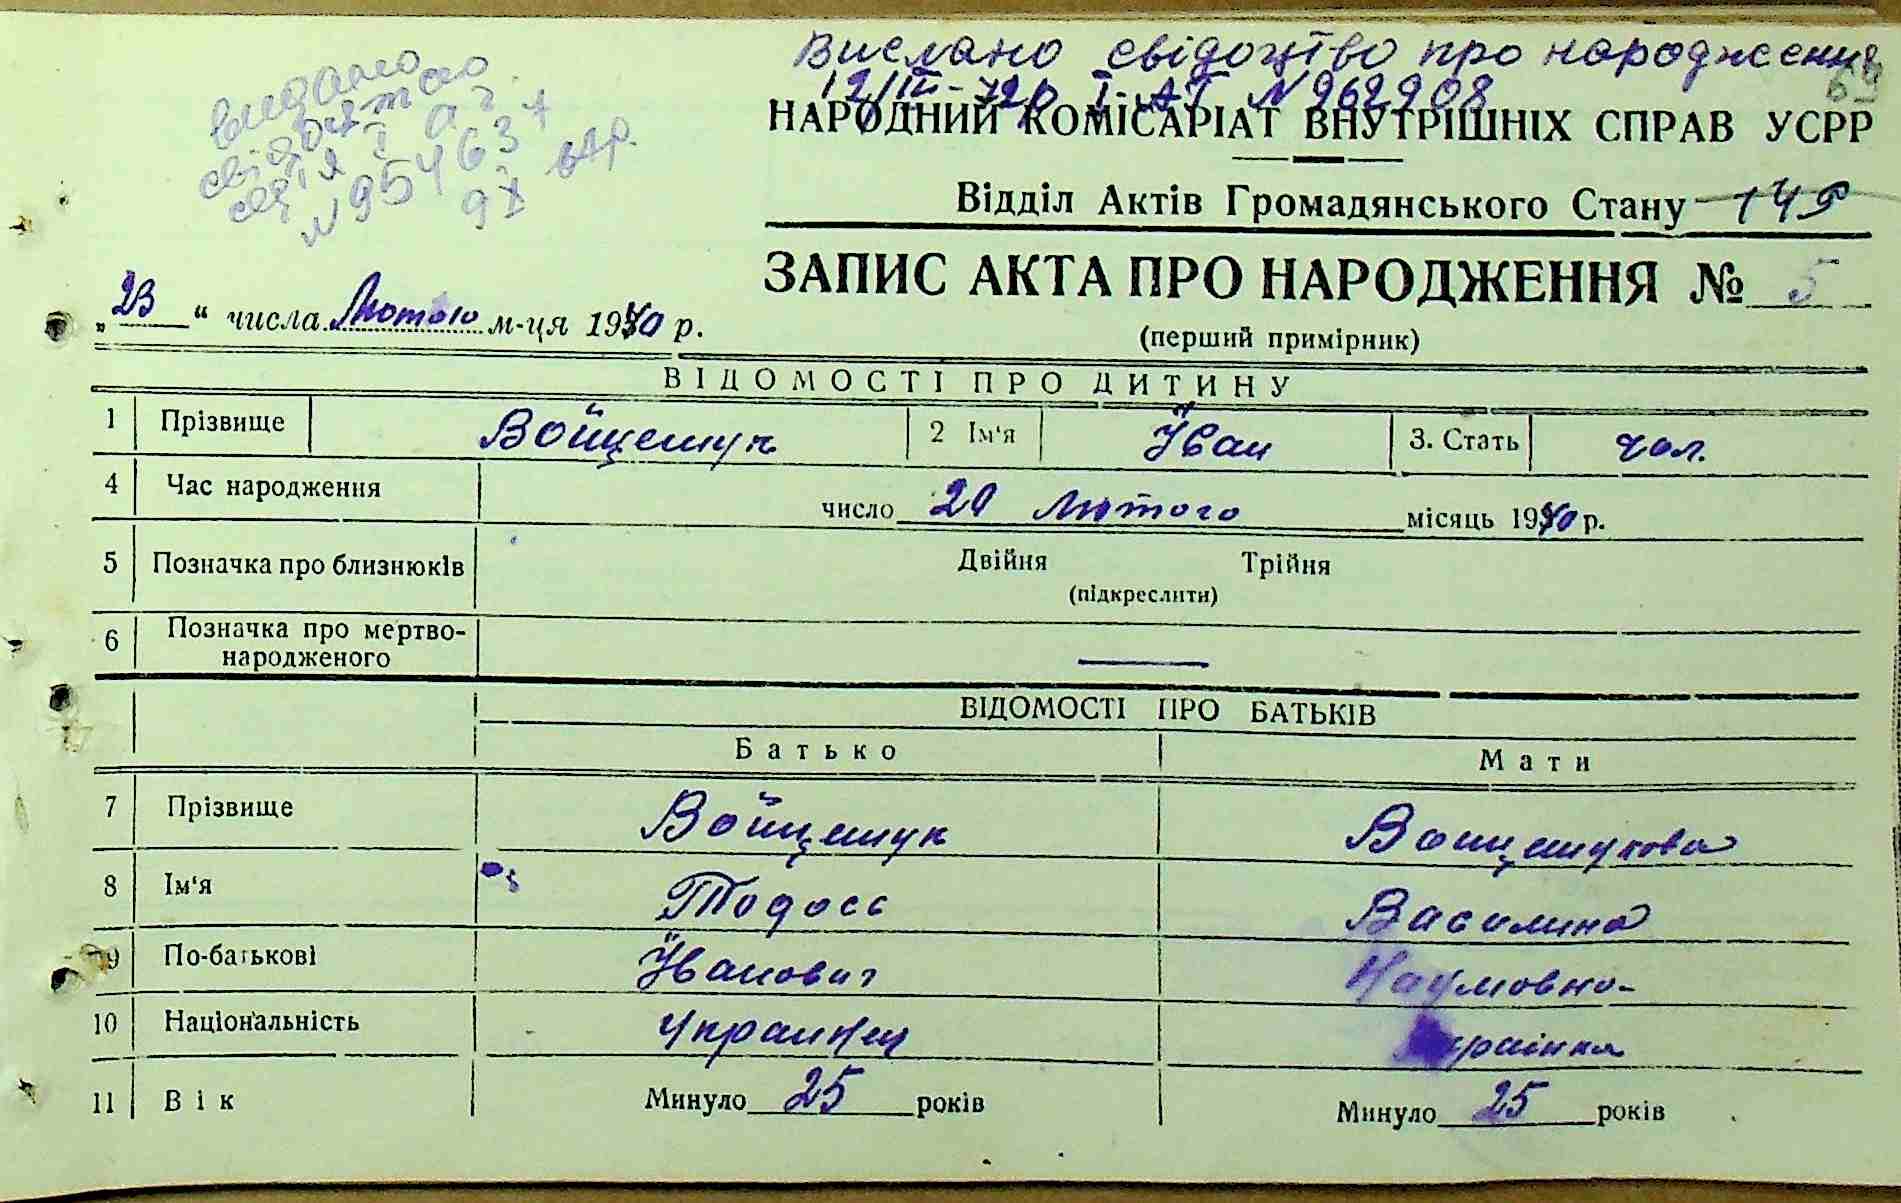 Вислано свідоцтво про народження
12/III-72р І-АТ N 962908
69
видано
свідоцтво
N 954637
НАРОДНИЙ КОМІСАРІАТ ВНУТРІШНІХ СПРАВ УСРР
Відділ Актів Громадянського Стану 149
ЗАПИС АКТА ПРО НАРОДЖЕННЯ № 5
(перший примірник)
„23“ числа Лютого м-ця 1940 р.
ВІДОМОСТІ ПРО ДИТИНУ
1 Прізвище Войцешук 2 Ім'я Іван 3. Стать чол.
4 Час народження число 20 Лютого місяць 1940 р.
5 Позначка про близнюків Двійня Трійня
(підкреслити)
6 Позначка про мертво-
народженого
ВІДОМОСТІ ПРО БАТЬКІВ
Батько Мати
7 Прізвище Войцешук Войцешукова
8 Ім'я Тодось Василина
9 По-батькові Іванович Наумовна
10 Національність Украінец Украінка
11 Вік Минуло 25 років Минуло 25 років